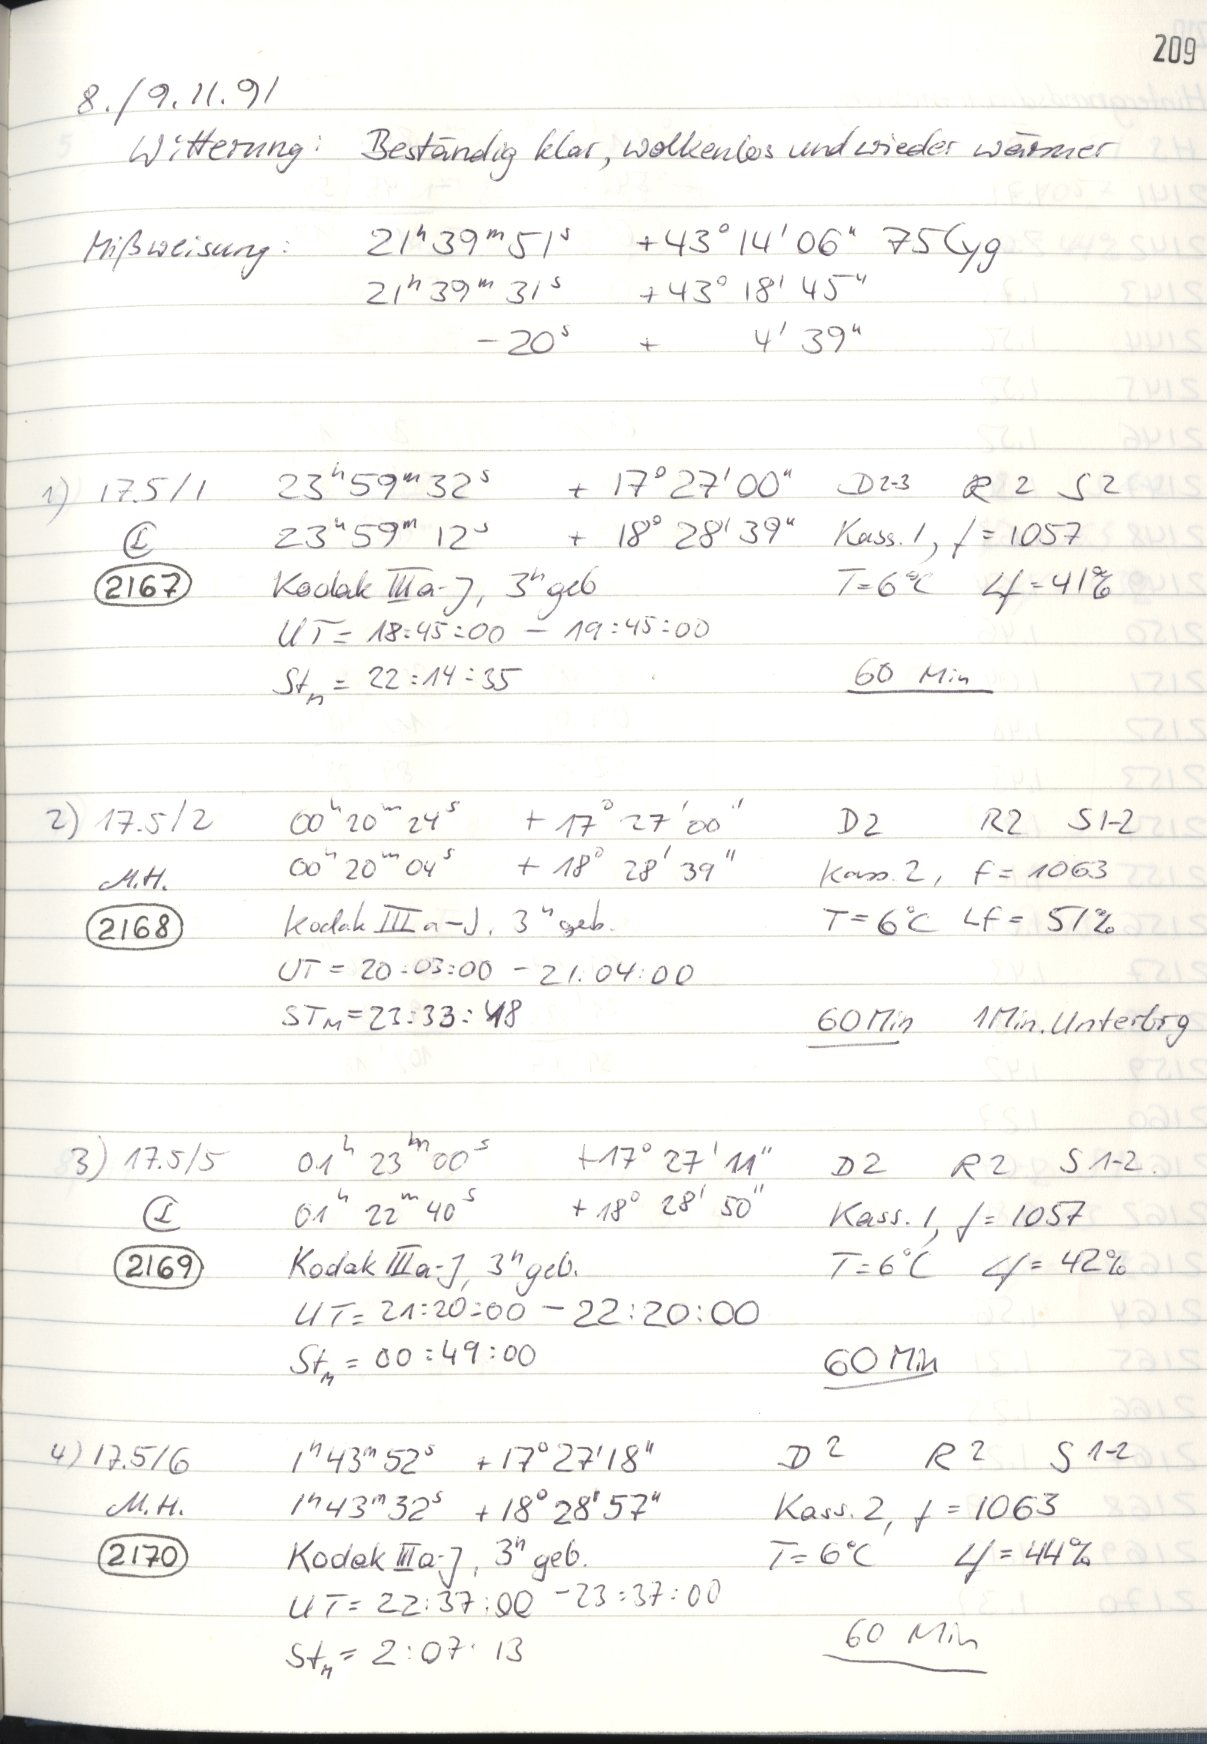 209
8./9.11.91
Witterung: Beständig klar, wolkenlos und wieder wärmer
Mißweisung: 21h 39m 51s +43° 14' 06" 75 Cyg
21h 39m 31s +43° 18' 45"
-20s + 4' 39"
1) 17.5/1 23h 59m 32s + 17° 27' 00" D2-3 R2 S2
23h 59m 12s + 18° 28' 39" Kass. 1, f = 1057
2167 Kodak IIIa-J, 3h geb T=6°C Lf=41%
UT = 18:45:00 - 19:45:00
Stm = 22:14:35 60 Min
2) 17.5/2 00h 20m 24s + 17° 27' 00" D2 R2 S1-2
M.H. 00h 20m 04s + 18° 28' 39" Kass. 2, f = 1063
2168 Kodak IIIa-J, 3h geb. T=6°C Lf = 51%
UT = 20:03:00 - 21:04:00
STM = 23:33:48 60 Min 1 Min. Unterbrg
3) 17.5/5 01h 23m 00s +17° 27' 11" D2 R2 S1-2.
01h 22m 40s + 18° 28' 50" Kass. 1, f = 1057
2169 Kodak IIIa-J, 3h geb. T=6°C Lf = 42%
UT = 21:20:00 - 22:20:00
Stm = 00:49:00 60 Min
4) 17.5/6 1h 43m 52s +17° 27' 18" D2 R2 S1-2
M.H. 1h 43m 32s +18° 28' 57" Kass. 2, f = 1063
2170 Kodak IIIa-J, 3h geb. T=6°C Lf = 44%
UT = 22:37:00 - 23:37:00
Stm = 2:07:13 60 Min